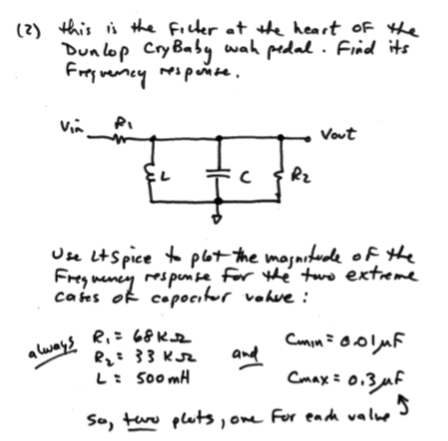 (2) this is the filter at the heart of the
Dunlop CryBaby wah pedal. Find its
Frequency response.
Vin R1 Vout
L C R2
Use LtSpice to plot the magnitude of the
Frequency response for the two extreme
cases of capacitor value:
always R1 = 68 KΩ and Cmin = 0.01μF
R2 = 33 KΩ
L = 500 mH Cmax = 0.3μF
So, two plots, one for each value